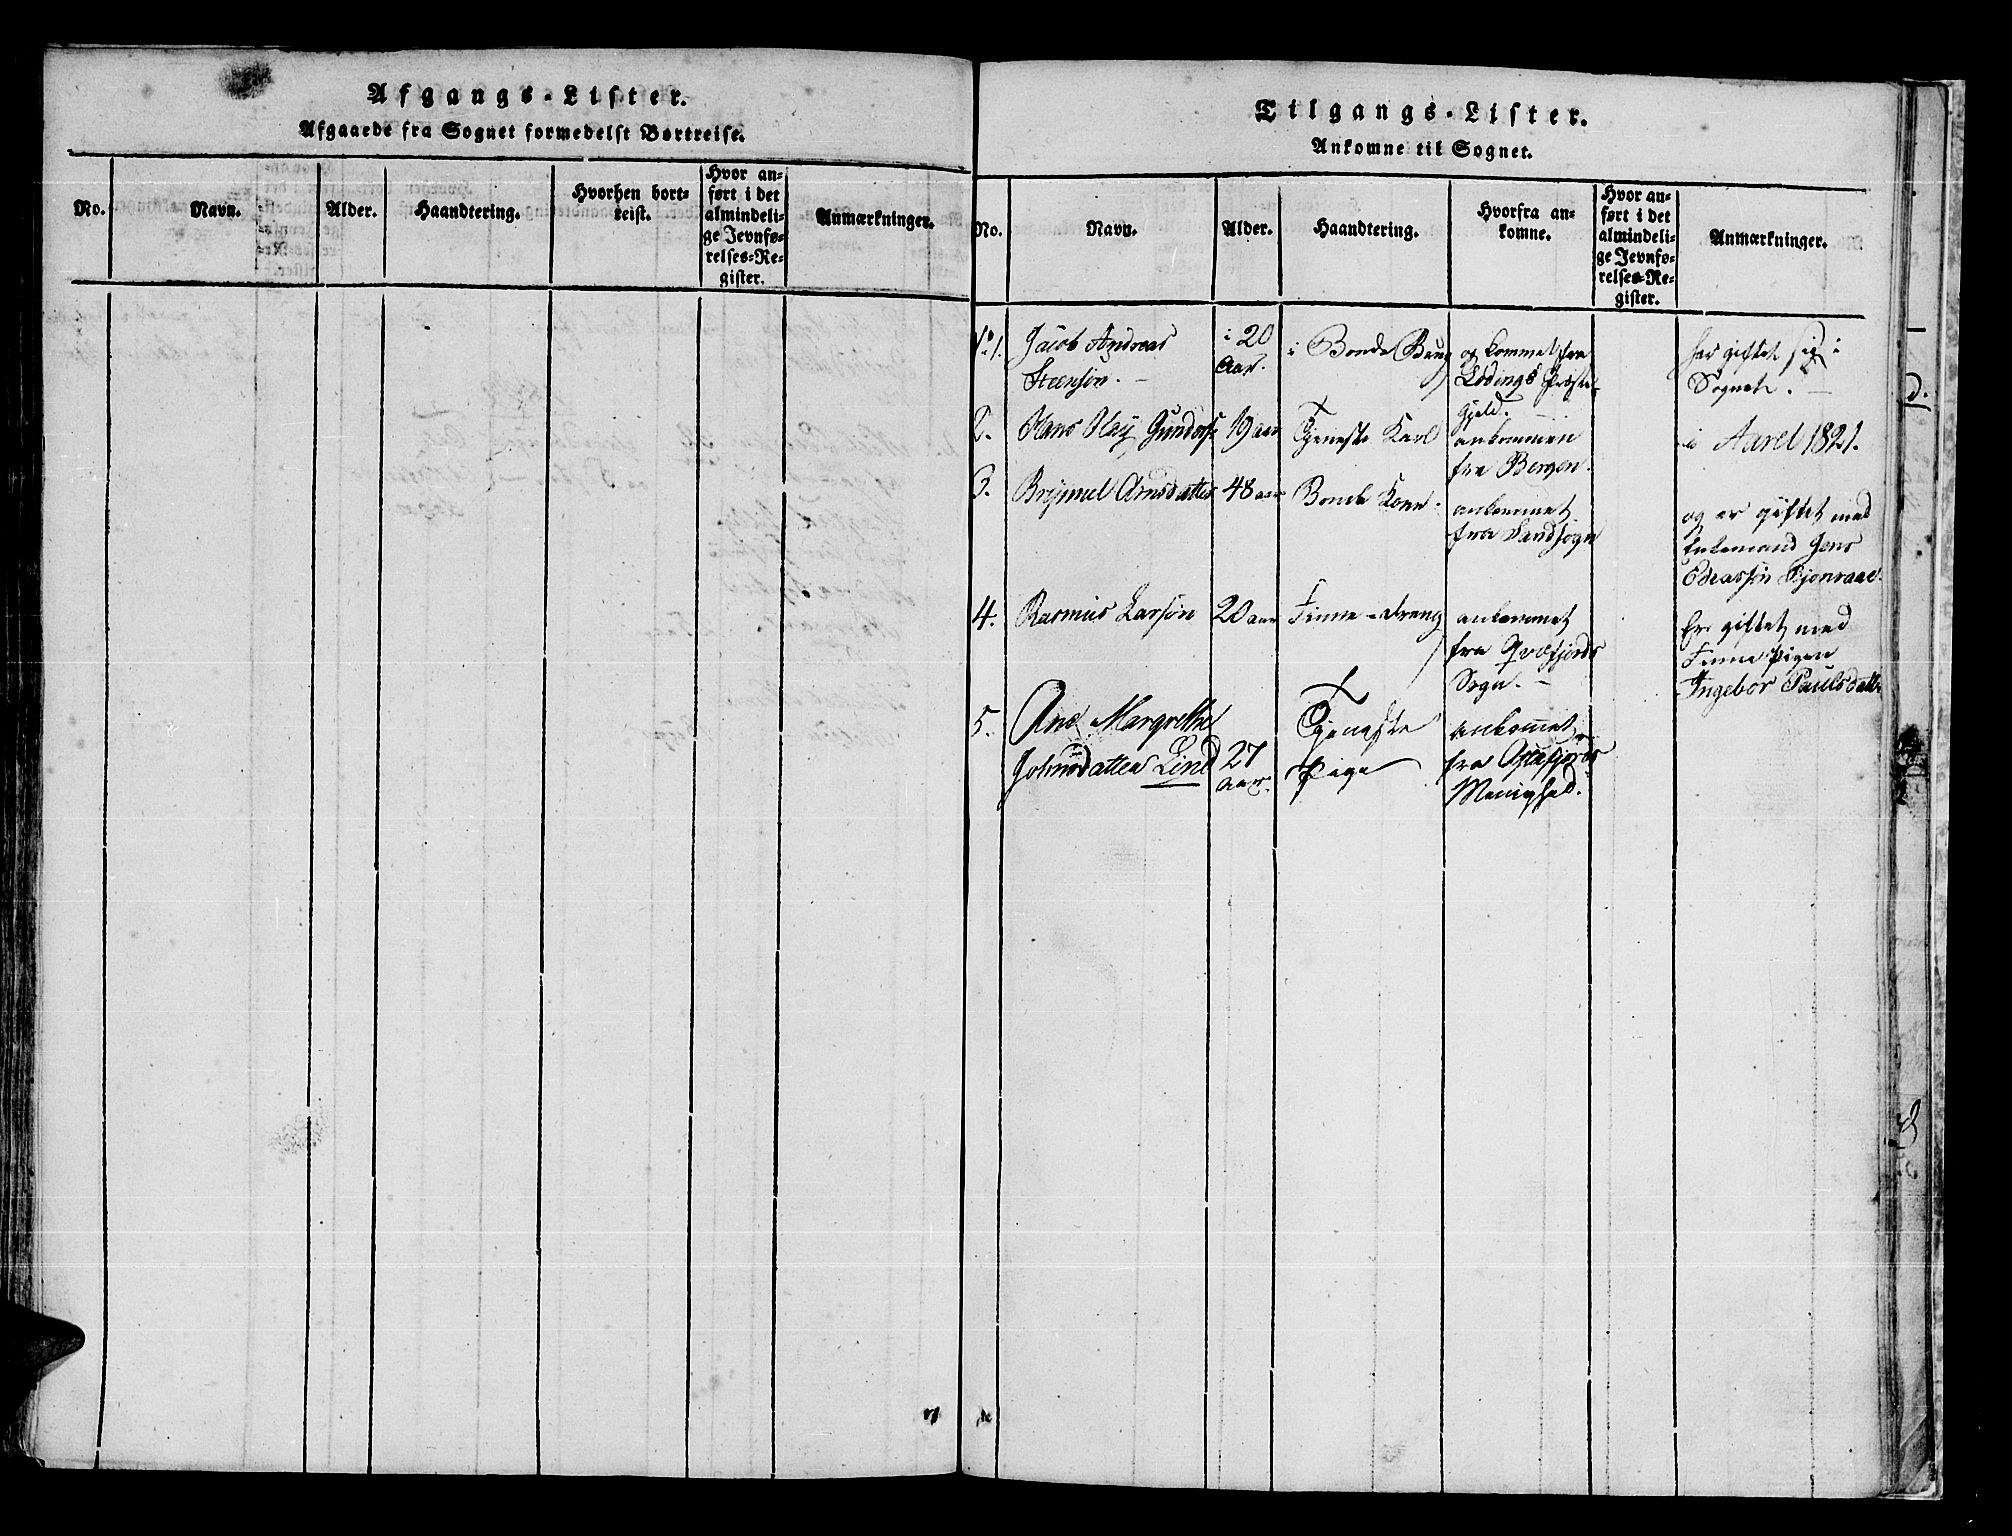 Afgangs-Lister.
Afgaaede fra Sognet formedelst Bortreise.
No.
Navn.
Alder.
Haandtering.
Hvorhen bort-
reist.
Hvor an-
ført i det
almindeli-
ge Jevnfø-
relses-Re-
gister.
Anmærkninger.
Tilgangs-Lister.
Ankomne til Sognet.
No.
Navn.
Alder.
Haandtering.
Hvorfra an-
komne.
Hvor an-
ført i det
almindeli-
ge Jevnfø-
relses-Re-
gister.
Anmærkninger.
No 1.
Jacob Andreas
Steensøn. —
i 20
Aar.
i Bonde Brug
og kommet fra
Lødings Præste
Gjeld. —
har giftet sig i
Sognet. —
2.
Hans Høy
19 aar
Tjeneste Karl
ankommen
fra Bergen.
i Aaret 1821.
3.
Arnsdatter
48 aar
Bonde Kone.
ankommet
fra Sandsogn
og er giftet med
Enkemand Jens
4.
Rasmus Larsøn
20 aar
Finne-dreng
ankommet
fra Qvæfjords
Sogn. —
Er giftet med
Finne Pigen
Ingebor Paulsdatter
5.
Ane Margrethe
Johnsdatter Lind
27
Aar.
Tjeneste
Pige
ankommet
fra
Menighed.